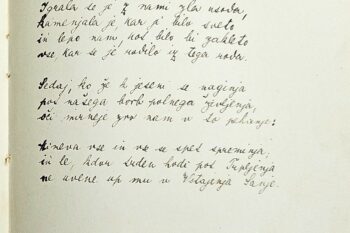 Igrala se je z nami zla usoda,
kamenjala je, kar ji bilo sveto
in lepo nam, kot bilo bi zakleto
vse kar se je rodilo iz tega roda.
Sedaj, ko že k jeseni se naginja
pot našega borb polnega življenja,
oči mirneje zro nam v to
mineva vse in vse se spet spreminja;
in te, kdor suden hodi pot Trpljenja
ne uvene up mu v Vstajenja Sanje.